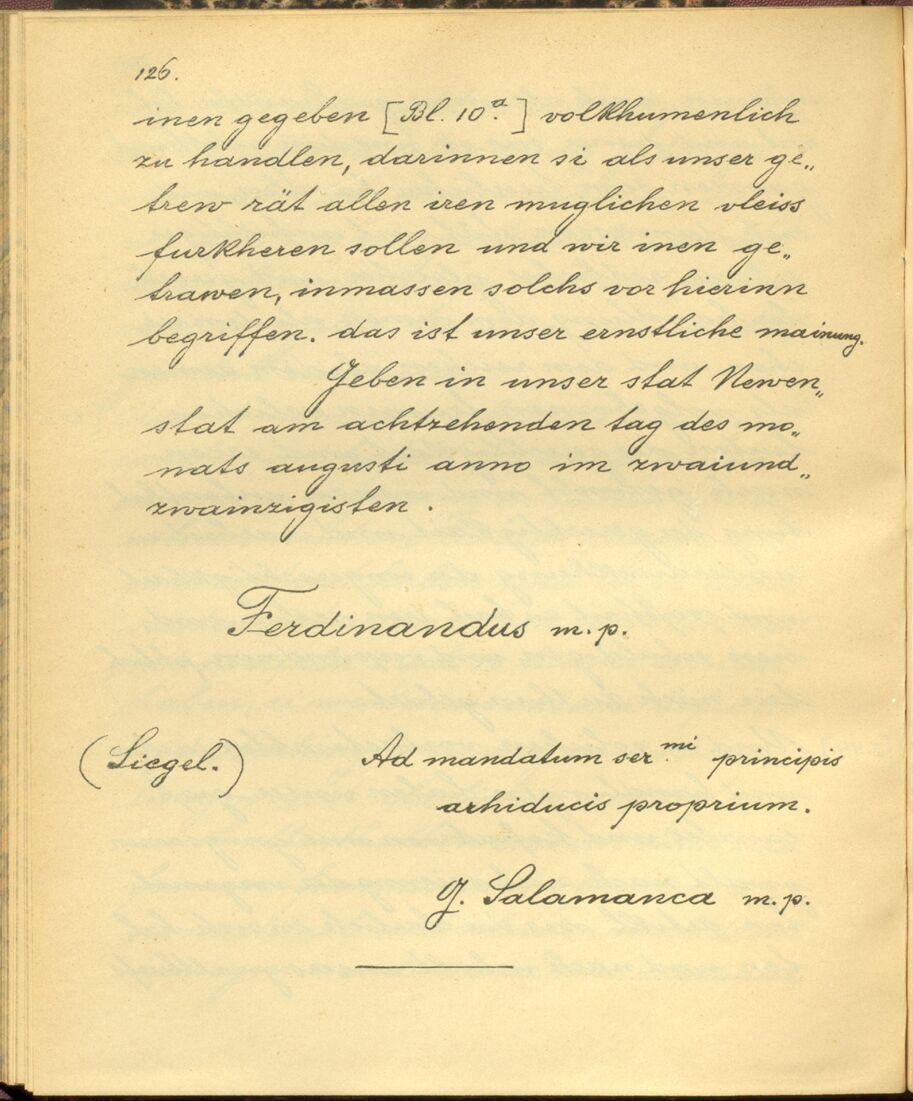 126.
inen gegeben [Bl. 10ª.] volkhumenlich
zu handlen, darinnen si als unser ge„
trew rät allen iren muglichen vleiss
furkheren sollen und wir inen ge„
trawen, inmassen solchs vor hierinn
begriffen. das ist unser ernstliche mainung.
Geben in unser stat Newen„
stat am achtzehenden tag des mo„
nats augusti anno im zwaiund„
zwainzigisten.
Ferdinandus m. p.
(Siegel.)
Ad mandatum ser.mi principis
arhiducis proprium.
G. Salamanca m. p.